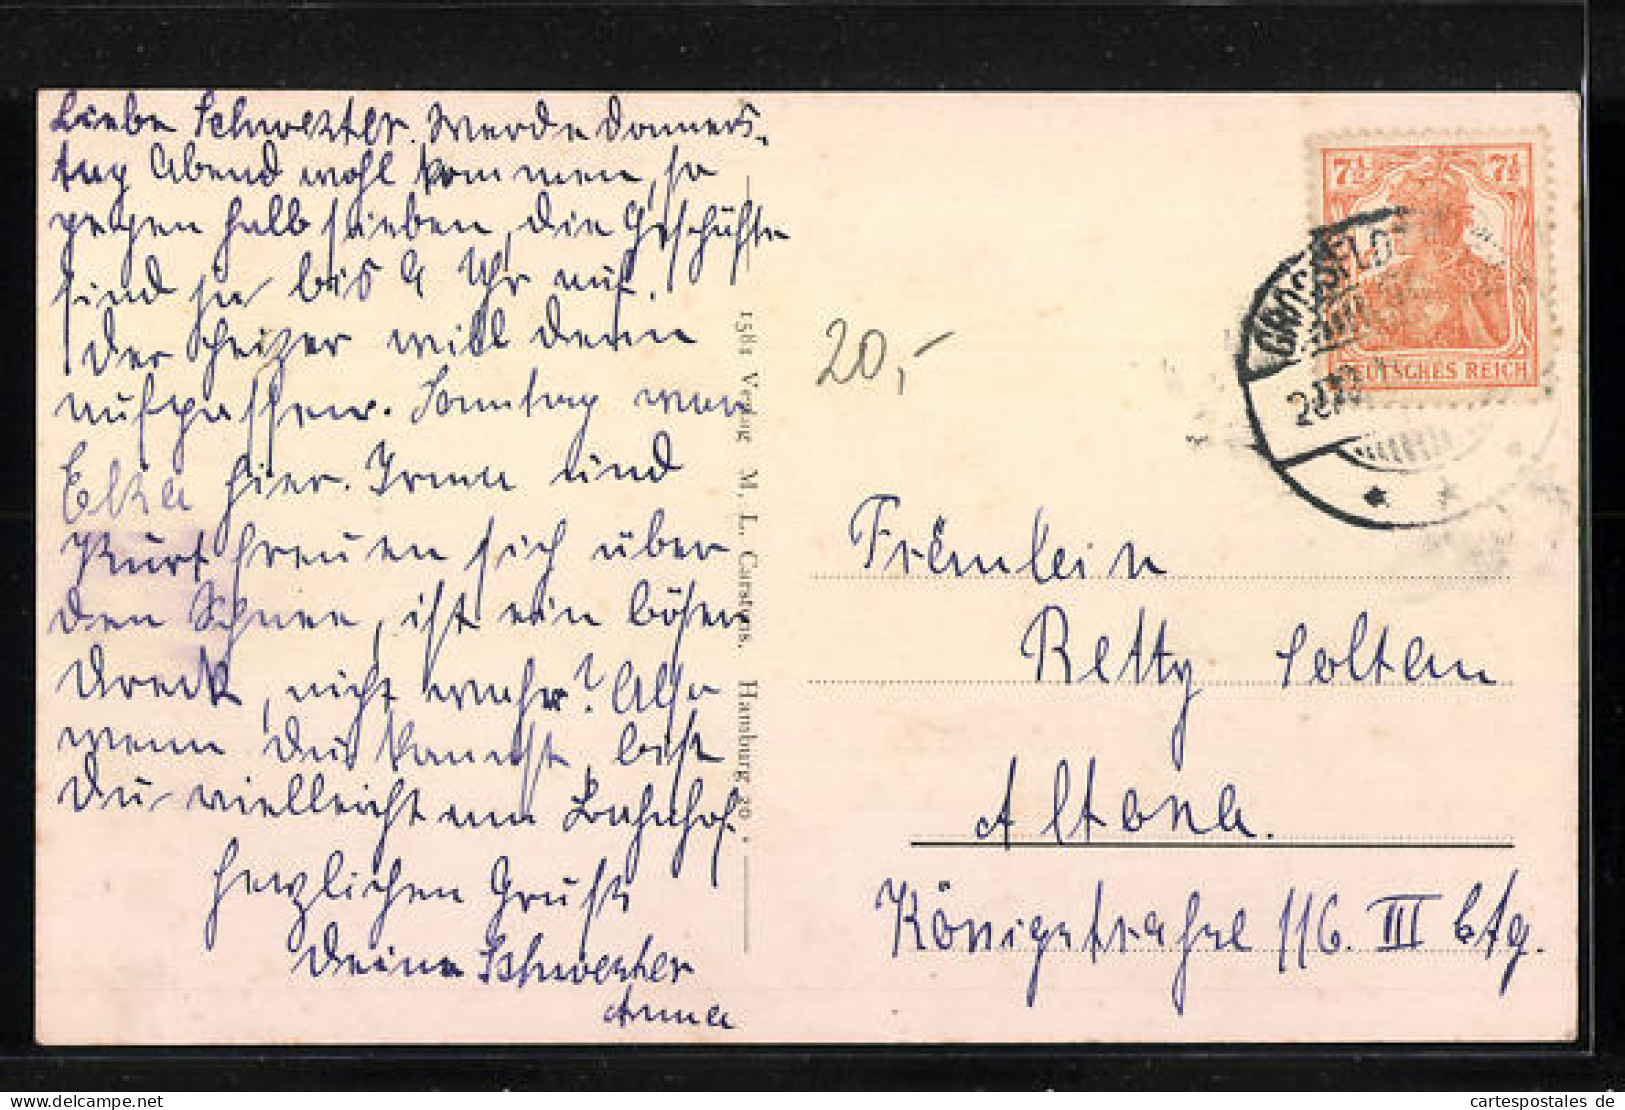 Liebe Schwester. Werde Donners-
tag Abend wohl kommen, so
gegen halb sieben, die Geschäfte
sind ja bis 9 Uhr auf.
Der Heizer will denn
aufpassen. Sonntag war
Elka hier. Irma und
Kurt freuen sich über
den Schnee, ist ein böser
Dreck, nicht wahr? Also
wenn Du kannst, bist
Du vielleicht am Bahnhof.
Herzlichen Gruß
Deine Schwester
Anna
1581 Verlag M. L. Carstens, Hamburg 30
20,-
7½ 7½
DEUTSCHES REICH
GROSSFLO
Fräulein
Retty Soltau
Altona.
Königstraße 116. III Etg.
cartespostales de
delcampe.net/item/